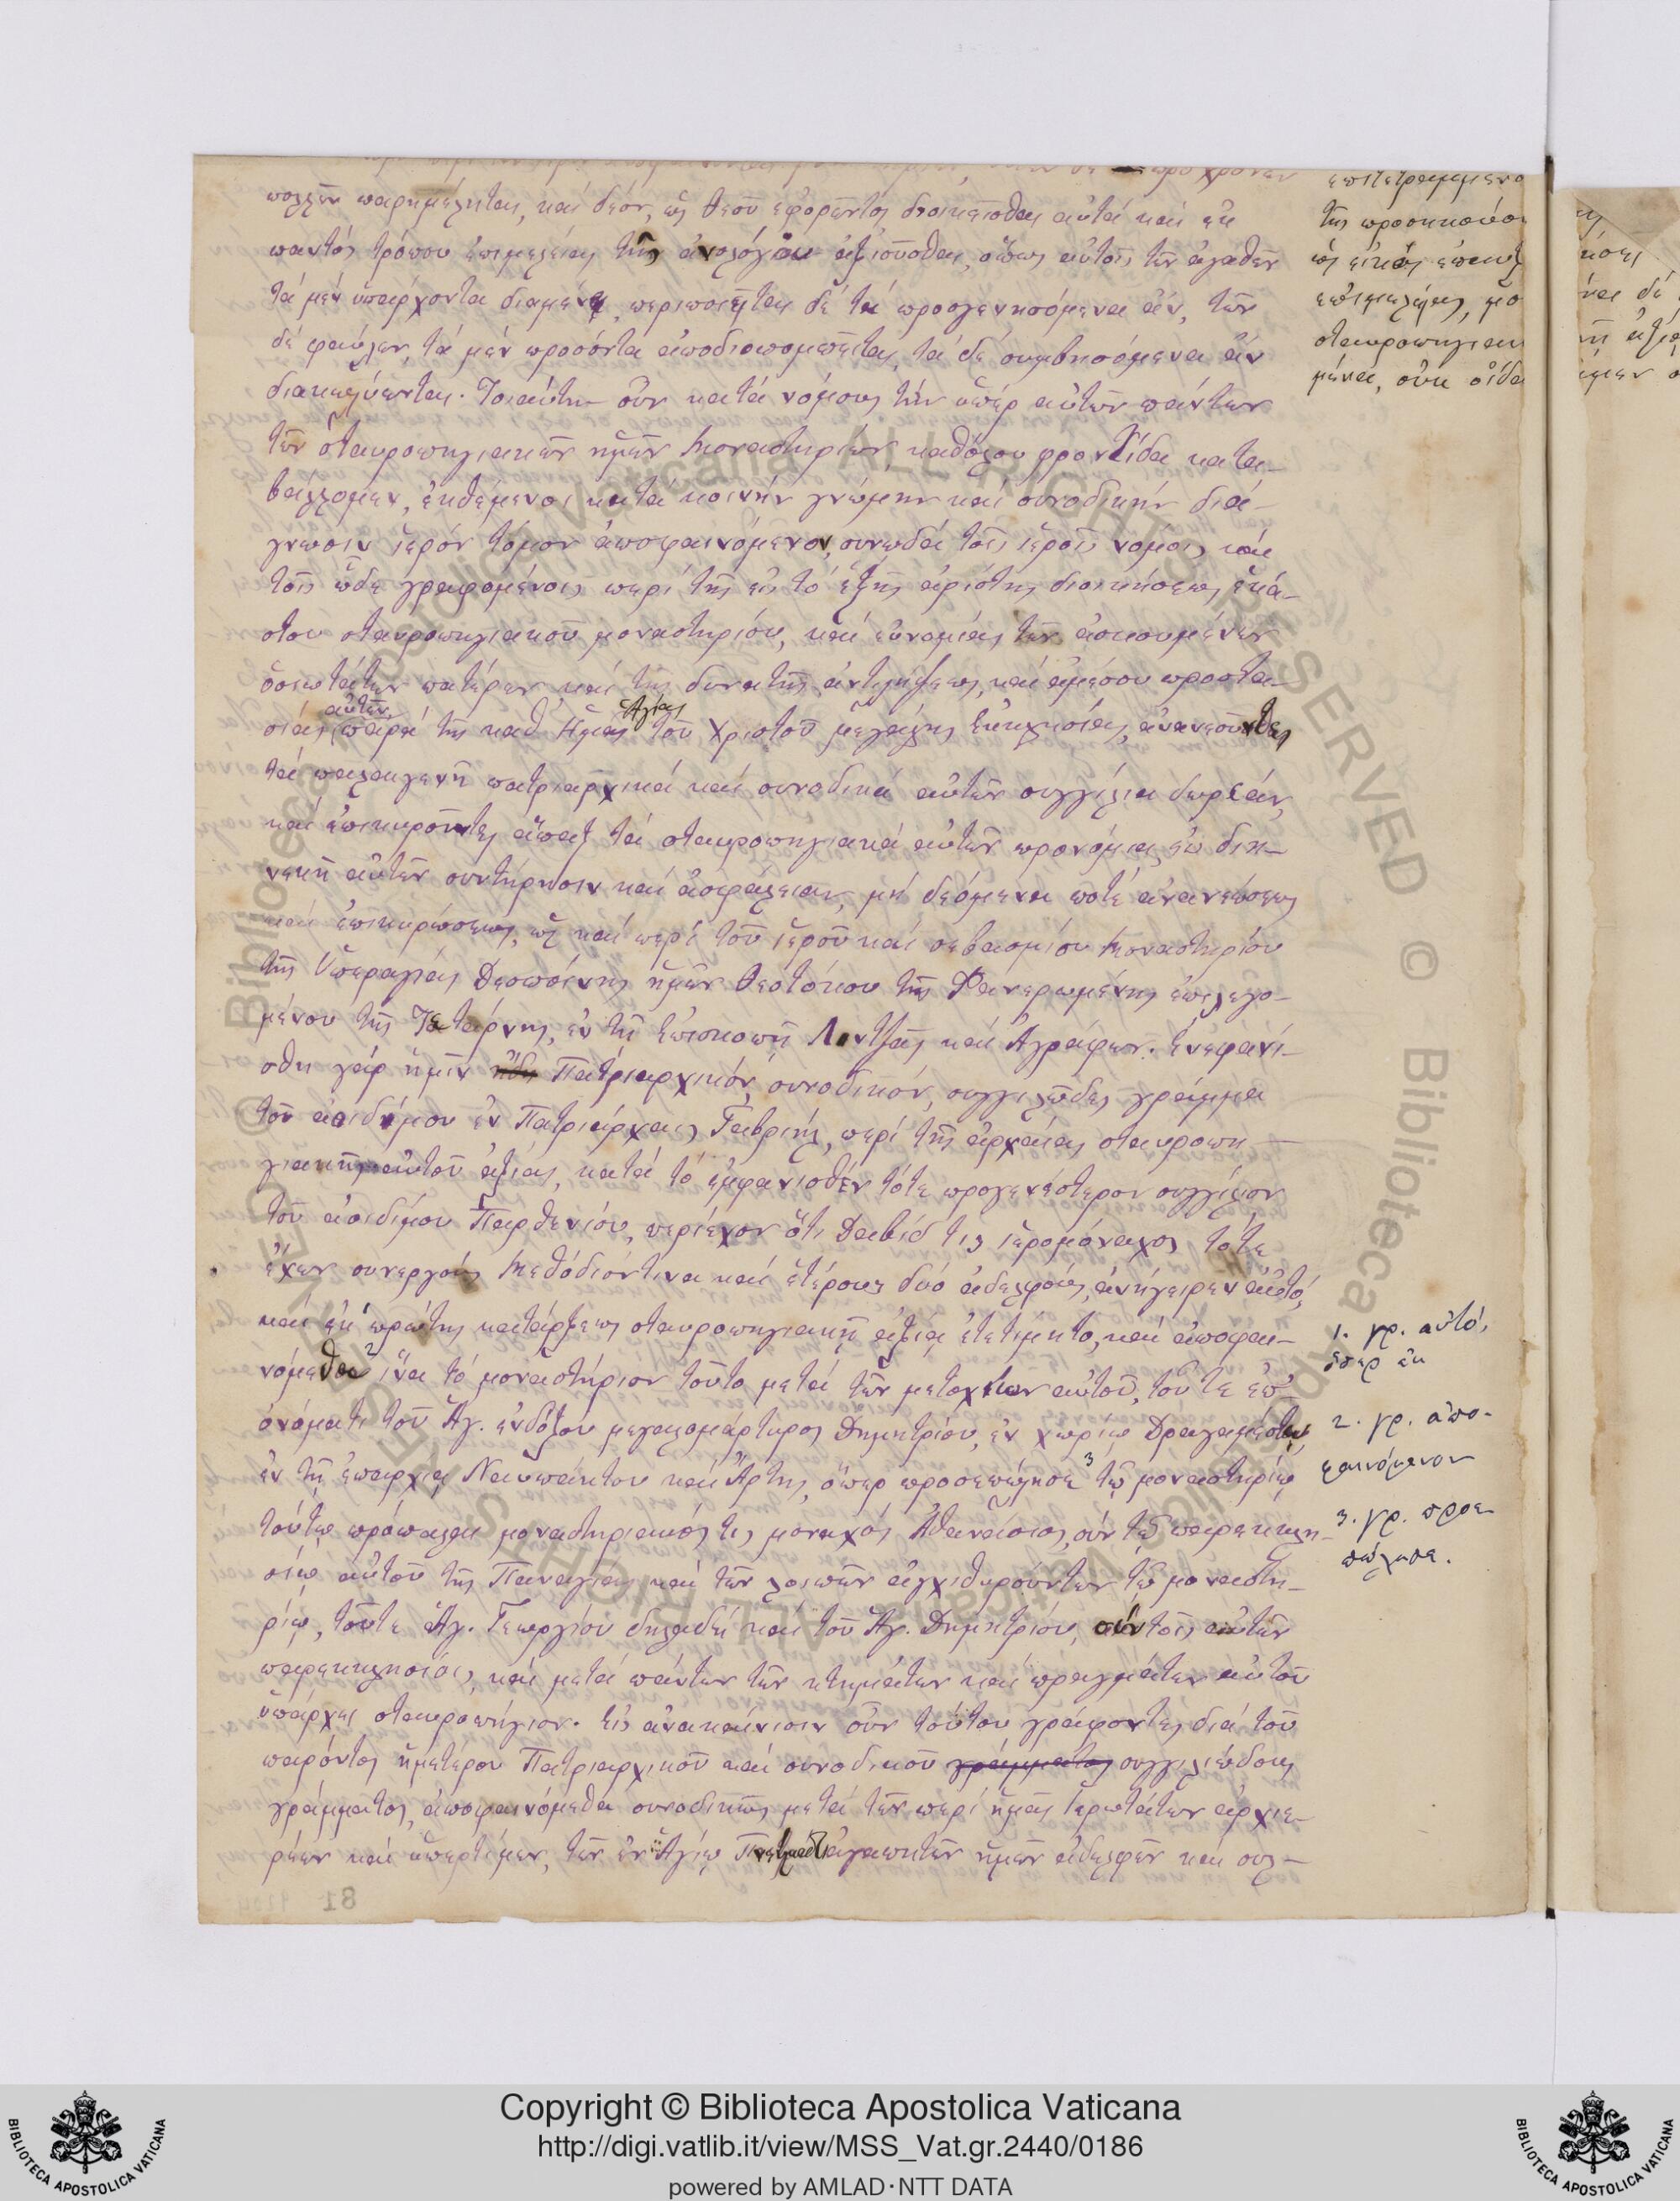 πολλῶν παρημέληται, καί δέον, ὡς Θεοῦ ἐφορῶντος διοικεῖσθαι αὐτά καί ἐκ
παντός τρόπου ἐπιμελείας τῆς ἀναλόγου ἀξιοῦσθαι, ὅπως αὐτοῖς τῶν ἀγαθῶν
τά μέν ὑπάρχοντα διαμένῃ, περιποιῆται δέ τά προσγενησόμενα ἄν, τῶν
δέ φαύλων, τά μέν προσόντα ἀποδιοπομπεῖται, τά δέ συμβησόμενα ἄν
διακωλύωνται. Τοιαύτην οὖν κατά νόμους τήν ὑπέρ αὐτῶν πάντων
τῶν σταυροπηγιακῶν ἡμῶν Μοναστηρίων, καθόλου φροντίδα κατα-
βάλλομεν, ἐκθέμενοι κατά κοινήν γνώμην καί συνοδικήν διά-
γνωσιν ἱερόν τόμον ἀποφαινόμενον, συνῳδά τοῖς ἱεροῖς νόμοις καί
τοῖς ὧδε γραφομένοις περί τῆς εἰς τό ἑξῆς ἀρίστης διοικήσεως ἑκά-
στου σταυροπηγιακοῦ μοναστηρίου, καί εὐνομίας τῶν ἀσκουμένων
ὁσιωτάτων πατέρων καί τῆς δυνατῆς ἀντιλήψεως, καί ἀμέσου προστα-
σίας αὐτῶν παρά τῆς καθ' Ἡμᾶς Ἁγίας τοῦ Χριστοῦ Μεγάλης Ἐκκλησίας, ἀνανεοῦντες
τά παλαιγενῆ πατριαρχικά καί συνοδικά αὐτῶν συγγίλια δωρεάν,
καί ἐπικυροῦντες ἅπαξ τά σταυροπηγιακά αὐτῶν προνόμια, ἐν διη-
νεκῆ αὐτῶν συντήρησιν καί ἀσφάλειαν, μή δεόμενα ποτέ ἀνανεώσεως
καί ἐπικυρώσεως, ὡς καί περί τοῦ ἱεροῦ καί σεβασμίου Μοναστηρίου
τῆς Ὑπεραγίας Δεσποίνης ἡμῶν Θεοτόκου τῆς Φανερωμένης ἐπιλεγο-
μένου τῆς Τατάρνης, ἐν τῇ Ἐπισκοπῇ Λιντζᾶς καί Ἀγράφων. Ἐνεφανί-
σθη γάρ ἡμῖν ἤδη Πατριαρχικόν, συνοδικόν, συγγιλιῶδες γράμμα
τοῦ ἀοιδίμου ἐν Πατριάρχαις Γαβριήλ, περί τῆς ἀρχαίας σταυροπη-
γιακῆς αὐτοῦ ἀξίας, κατά τό ἐμφανισθέν τότε προγενέστερον συγγίλιον
τοῦ ἀοιδίμου Παρθενίου, περιέχον ὅτι Δαβίδ τις ἱερομόναχος τότε
ἔχων συνεργούς Μεθόδιόν τινα καί ἑτέρους δύο ἀδελφούς, ἀνήγειρεν αὐτό,
καί ἐκ πρώτης κατάρξεως σταυροπηγιακῇ ἀξίᾳ ἐτετίμητο, καί ἀποφαι-
νόμεθα ² ἵνα τό μοναστήριον τοῦτο μετά τῶν μετοχίων αὐτοῦ, τοῦ τε ἐπ'
ὀνόματι τοῦ Ἁγ. ἐνδόξου μεγαλομάρτυρος Δημητρίου, ἐν χωρίῳ Δραγαμέστῳ,
ἐν τῇ ἐπαρχίᾳ Ναυπάκτου καί Ἄρτης, ὅπερ προσεπώλησε ³ τῷ μοναστηρίῳ
τούτῳ πρόπαλαι μοναστηριακός τις μοναχός Ἀθανάσιος, σύν τῷ παρεκκλη-
σίῳ αὐτοῦ τῆς Παναγίας καί τῶν λοιπῶν ἀγχιθυρούντων τῷ μοναστη-
ρίῳ, τοῦτε Ἁγ. Γεωργίου δηλαδή καί τοῦ Ἁγ. Δημητρίου, σύν τοῖς αὐτῶν
παρεκκλησίοις, καί μετά πάντων τῶν κτημάτων καί πραγμάτων αὐτοῦ
ὑπάρχει σταυροπήγιον. Εἰς ἀνακαίνισιν οὖν τούτου γράφοντες διά τοῦ
παρόντος ἡμετέρου Πατριαρχικοῦ καί συνοδικοῦ γράμματος συγγιλιώδους
γράμματος, ἀποφαινόμεθα συνοδικῶς μετά τῶν περί ἡμᾶς Ἱερωτάτων ἀρχιε-
ρέων καί ὑπερτίμων, τῶν ἐν Ἁγίῳ Πνεύματι ἀγαπητῶν ἡμῶν ἀδελφῶν καί συλ-
ἐπιτετραμμένο
τῆς προσηκούσ
ὡς εἰκός ἐπαυξ
ἐπιμελείας, μο
σταυροπηγιακ
μένα, οὐκ οἶδα
1. γρ. αὐτό,
ὅπερ ἐκ
2. γρ. ἀπο-
φαινόμενον
3. γρ. προε-
πώλησε.
81
Copyright © Biblioteca Apostolica Vaticana
http://digi.vatlib.it/view/MSS_Vat.gr.2440/0186
powered by AMLAD·NTT DATA